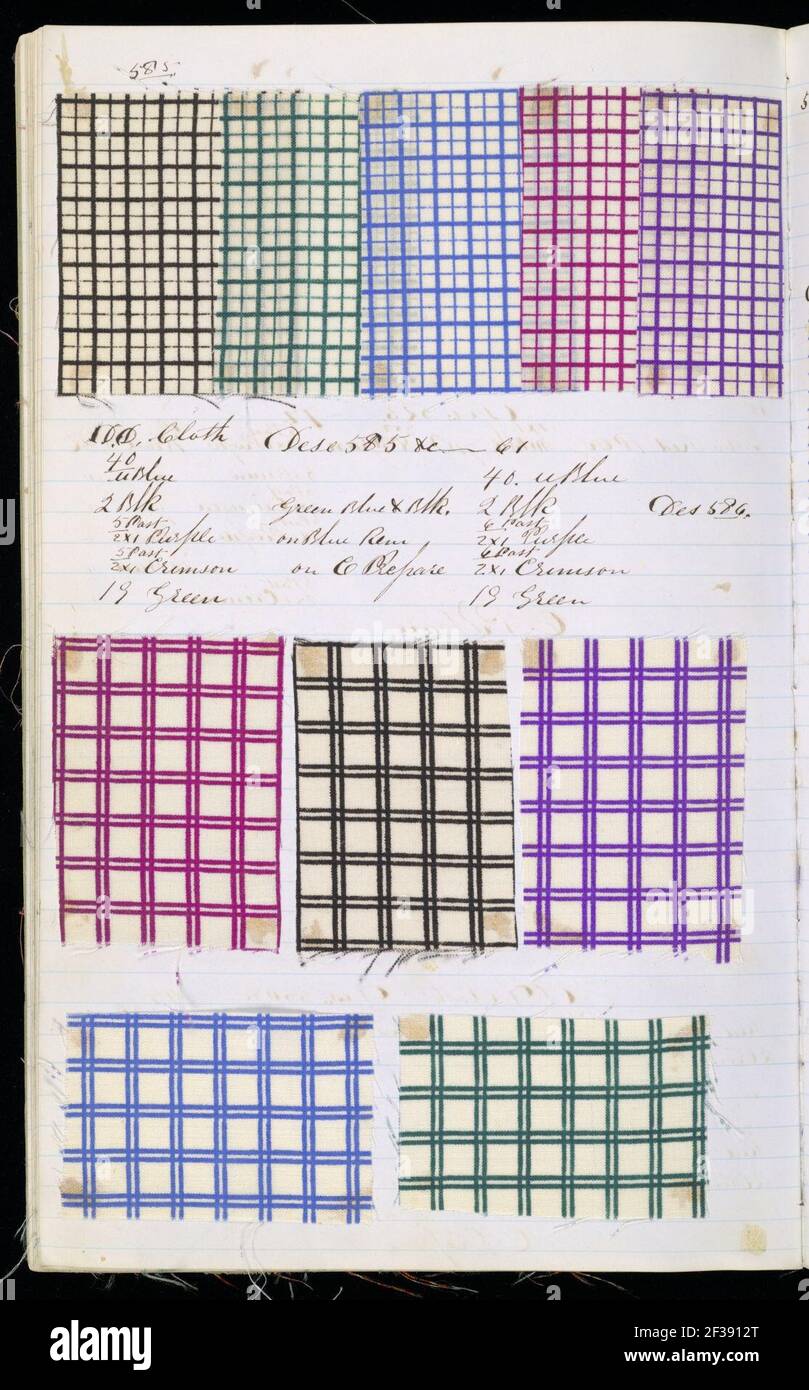 585
D.D. Cloth Des 585 &c 61
40 uBlue 40. uBlue
2 Blk Green Blue & Blk. 2 Blk Des 586.
5 Past 6 Past
2x1 Purple on Blue 2x1 Purple
5 Past 6 Past
2x1 Crimson on C Prepare 2x1 Crimson
19 Green 19 Green
alamy
alamy
alamy
Image ID: 2F3912T
www.alamy.com